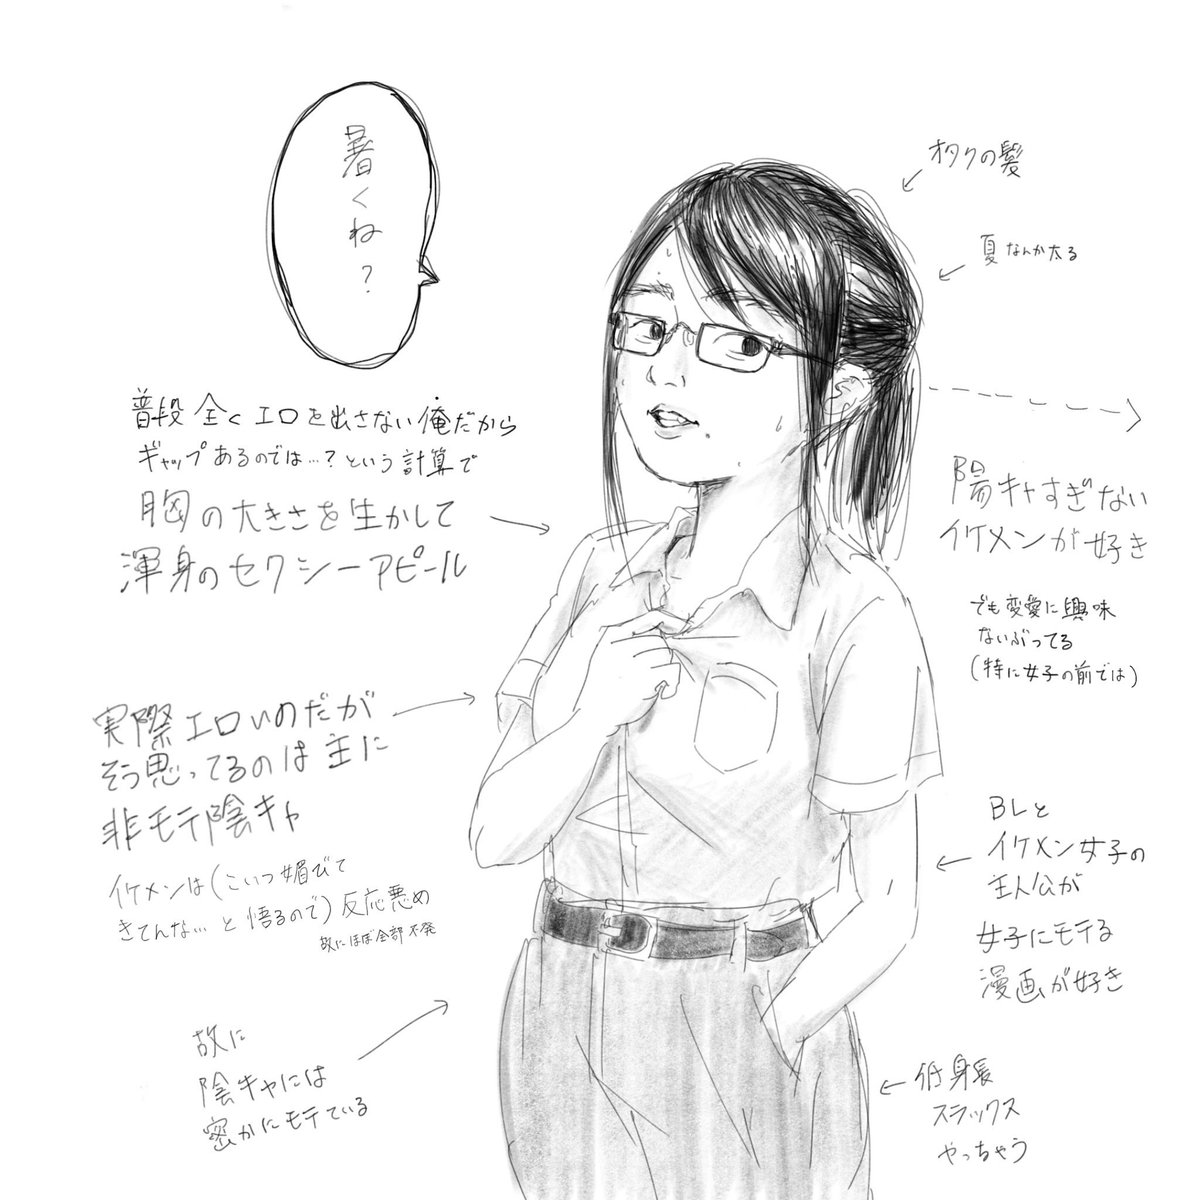 暑くね？
オタクの髪
夏なんか太る
普段全くエロを出さない俺だから
ギャップあるのでは…？という計算で
胸の大きさを生かして
渾身のセクシーアピール
陽キャすぎない
イケメンが好き
でも変愛に興味
ないぶってる
(特に女子の前では)
実際エロいのだが
そう思ってるのは主に
非モテ陰キャ
イケメンは(こいつ媚びて
きてんな…と悟るので)反応悪め
故にほぼ全部不発
BLと
イケメン女子の
主人公が
女子にモテる
漫画が好き
故に
陰キャには
密かにモテている
低身長
スラックス
やっちゃう